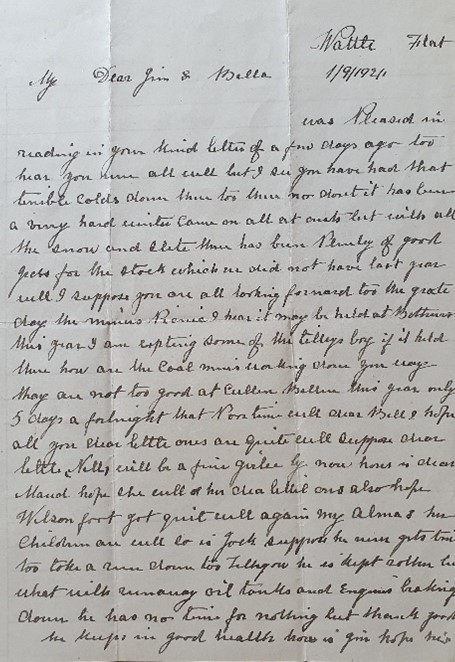 Wattle Flat
1/9/1921
My Dear Jim & Bella
was Pleased in
reading in your kind letter of a few days ago too
hear you were all well but I see you have had that
terrible colds down there too there no dout it has been
a very hard winter came on all at onst but with all
the snow and slete there has been Plenty of good
for the stock which we did not have last year
well I suppose you are all looking forward too the grate
day the miners Picnic I hear it may be held at Bathurst
this year I am expting some of the boy if it held
there how are the Coal mins working down you way
thay are not too good at Cullen Bullen this year only
5 days a fortnight that Poor time well dear Bell I hope
all you dear little ones are quite well suppose dear
little Nell will be a fine girlie by now hows is dear
Maud hope she well of her dear littel ons also hope
Wilson foot got quit well again my Alma & her
Children are well so is Jock suppose he never gets time
too take a run down too he is kept rother
what with runaway oil tanks and Engins braking
down he has no time for nothing but thank good
he keeps in good health how is Jim hope he's